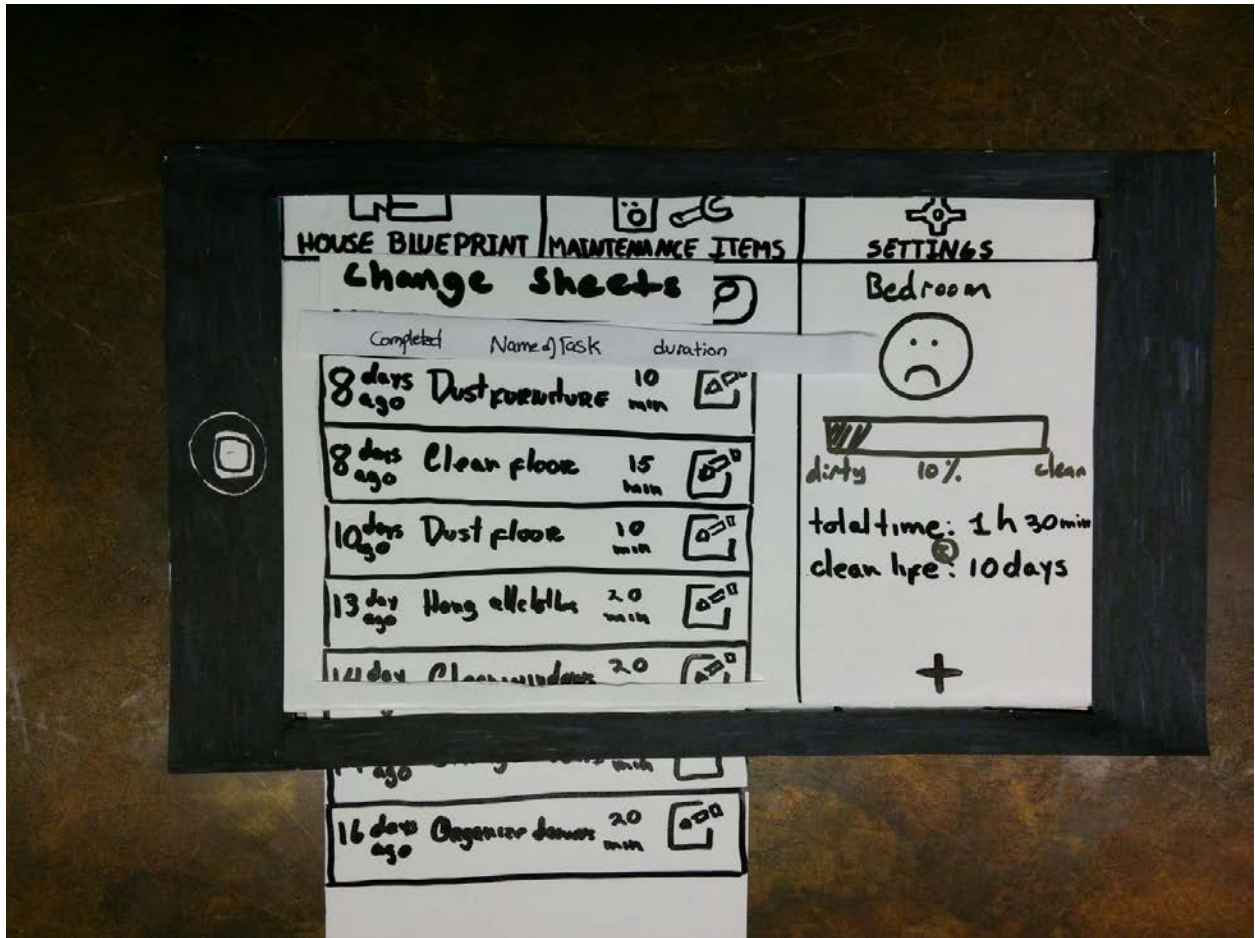 HOUSE BLUEPRINT MAINTENANCE ITEMS SETTINGS
Change Sheets
Completed Name of Task duration
8 days ago Dust FURNITURE 10 min
8 days ago Clean floor 15 min
10 days ago Dust floor 10 min
13 day ago Hang 20 min
14 day Clean windows 20
ago min
16 days ago Organize 20 min
Bedroom
dirty 10% clean
total time: 1 h 30 min
clean life: 10 days